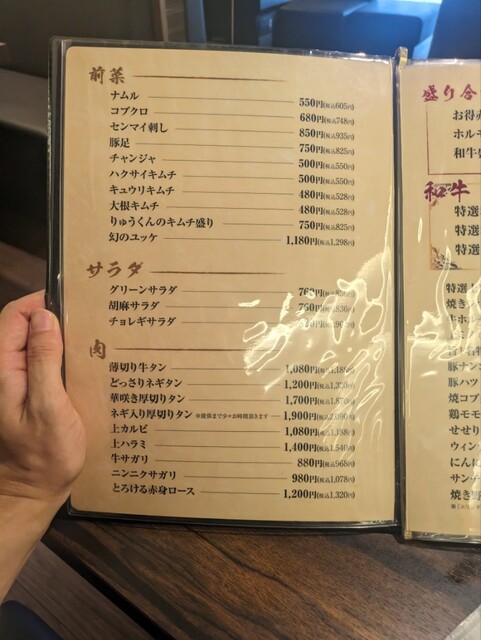 前菜
ナムル 550円(税込605円)
コブクロ 680円(税込748円)
センマイ刺し 850円(税込935円)
豚足 750円(税込825円)
チャンジャ 500円(税込550円)
ハクサイキムチ 500円(税込550円)
キュウリキムチ 480円(税込528円)
大根キムチ 480円(税込528円)
りゅうくんのキムチ盛り 750円(税込825円)
幻のユッケ 1,180円(税込1,298円)
サラダ
グリーンサラダ
胡麻サラダ
チョレギサラダ
肉
薄切り牛タン 1,080円(税込1,188円)
どっさりネギタン 1,200円(税込1,320円)
華咲き厚切りタン 1,700円(税込1,870円)
ネギ入り厚切りタン ※提供まで少々お時間頂きます 1,900円(税込2,090円)
上カルビ 1,080円(税込1,188円)
上ハラミ 1,400円(税込1,540円)
牛サガリ 880円(税込968円)
ニンニクサガリ 980円(税込1,078円)
とろける赤身ロース 1,200円(税込1,320円)
盛り合
お得
ホルモ
和牛
和牛
特選
特選
特選
特選
焼き
牛ホル
豚ナン
豚ハツ
焼コブ
鶏モモ
せせり
ウィン
にんに
サンチ
焼き野